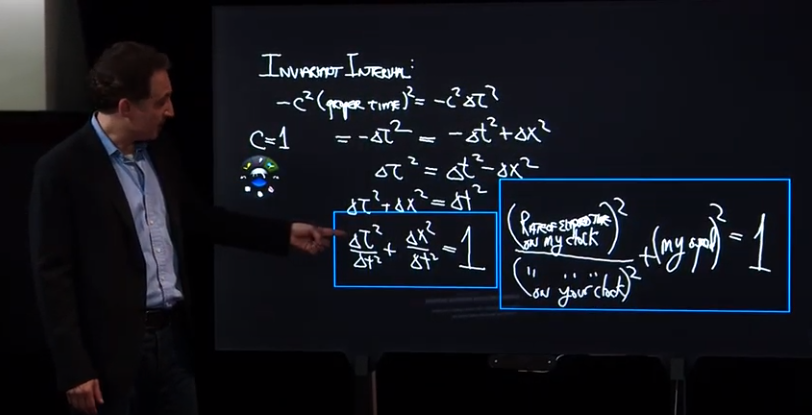 INVARIANT INTERVAL:
-c²(proper time)² = -c²Δτ²
c=1
= -Δτ² = -Δt² + Δx²
Δτ² = Δt² - Δx²
Δτ² + Δx² = Δt²
Δτ²/Δt² + Δx²/Δt² = 1
(RATE OF ELAPSED TIME on my clock)² / (" " " " on your clock)² + (my speed)² = 1